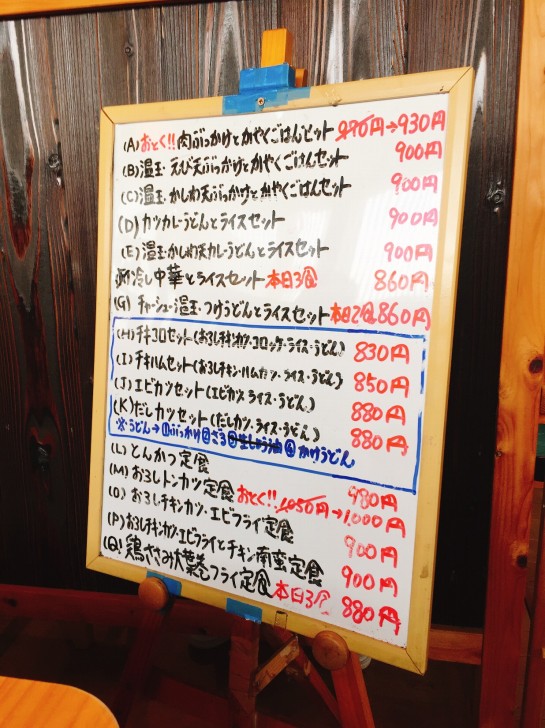 (A) おとく!! 肉ぶっかけとかやくごはんセット 970円→930円
(B) 温玉・えび天ぶっかけとかやくごはんセット 900円
(C) 温玉・かしわ天ぶっかけとかやくごはんセット 900円
(D) カツカレーうどんとライスセット 900円
(E) 温玉・かしわ天カレーうどんとライスセット 900円
冷し中華とライスセット 本日3食 860円
(G) チャーシュー・温玉・つけうどんとライスセット 本日2食 860円
(H) チキコロセット(おろしチキンカツ・コロッケ・ライス・うどん) 830円
(I) チキハムセット(おろしチキン・ハムカツ・ライス・うどん) 850円
(J) エビカツセット(エビカツ・ライス・うどん) 880円
(K) だしカツセット(だしカツ・ライス・うどん) 880円
※うどん→①ぶっかけ②ざる③生じょうゆ④かけうどん
(L) とんかつ定食 980円
(M) おろしトンカツ定食 おとく!! 1,050円→1,000円
(O) おろしチキンカツ・エビフライ定食 900円
(P) おろしチキンカツ・エビフライとチキン南蛮定食 900円
(Q) 鶏ささみ大葉巻フライ定食 本日3食 880円